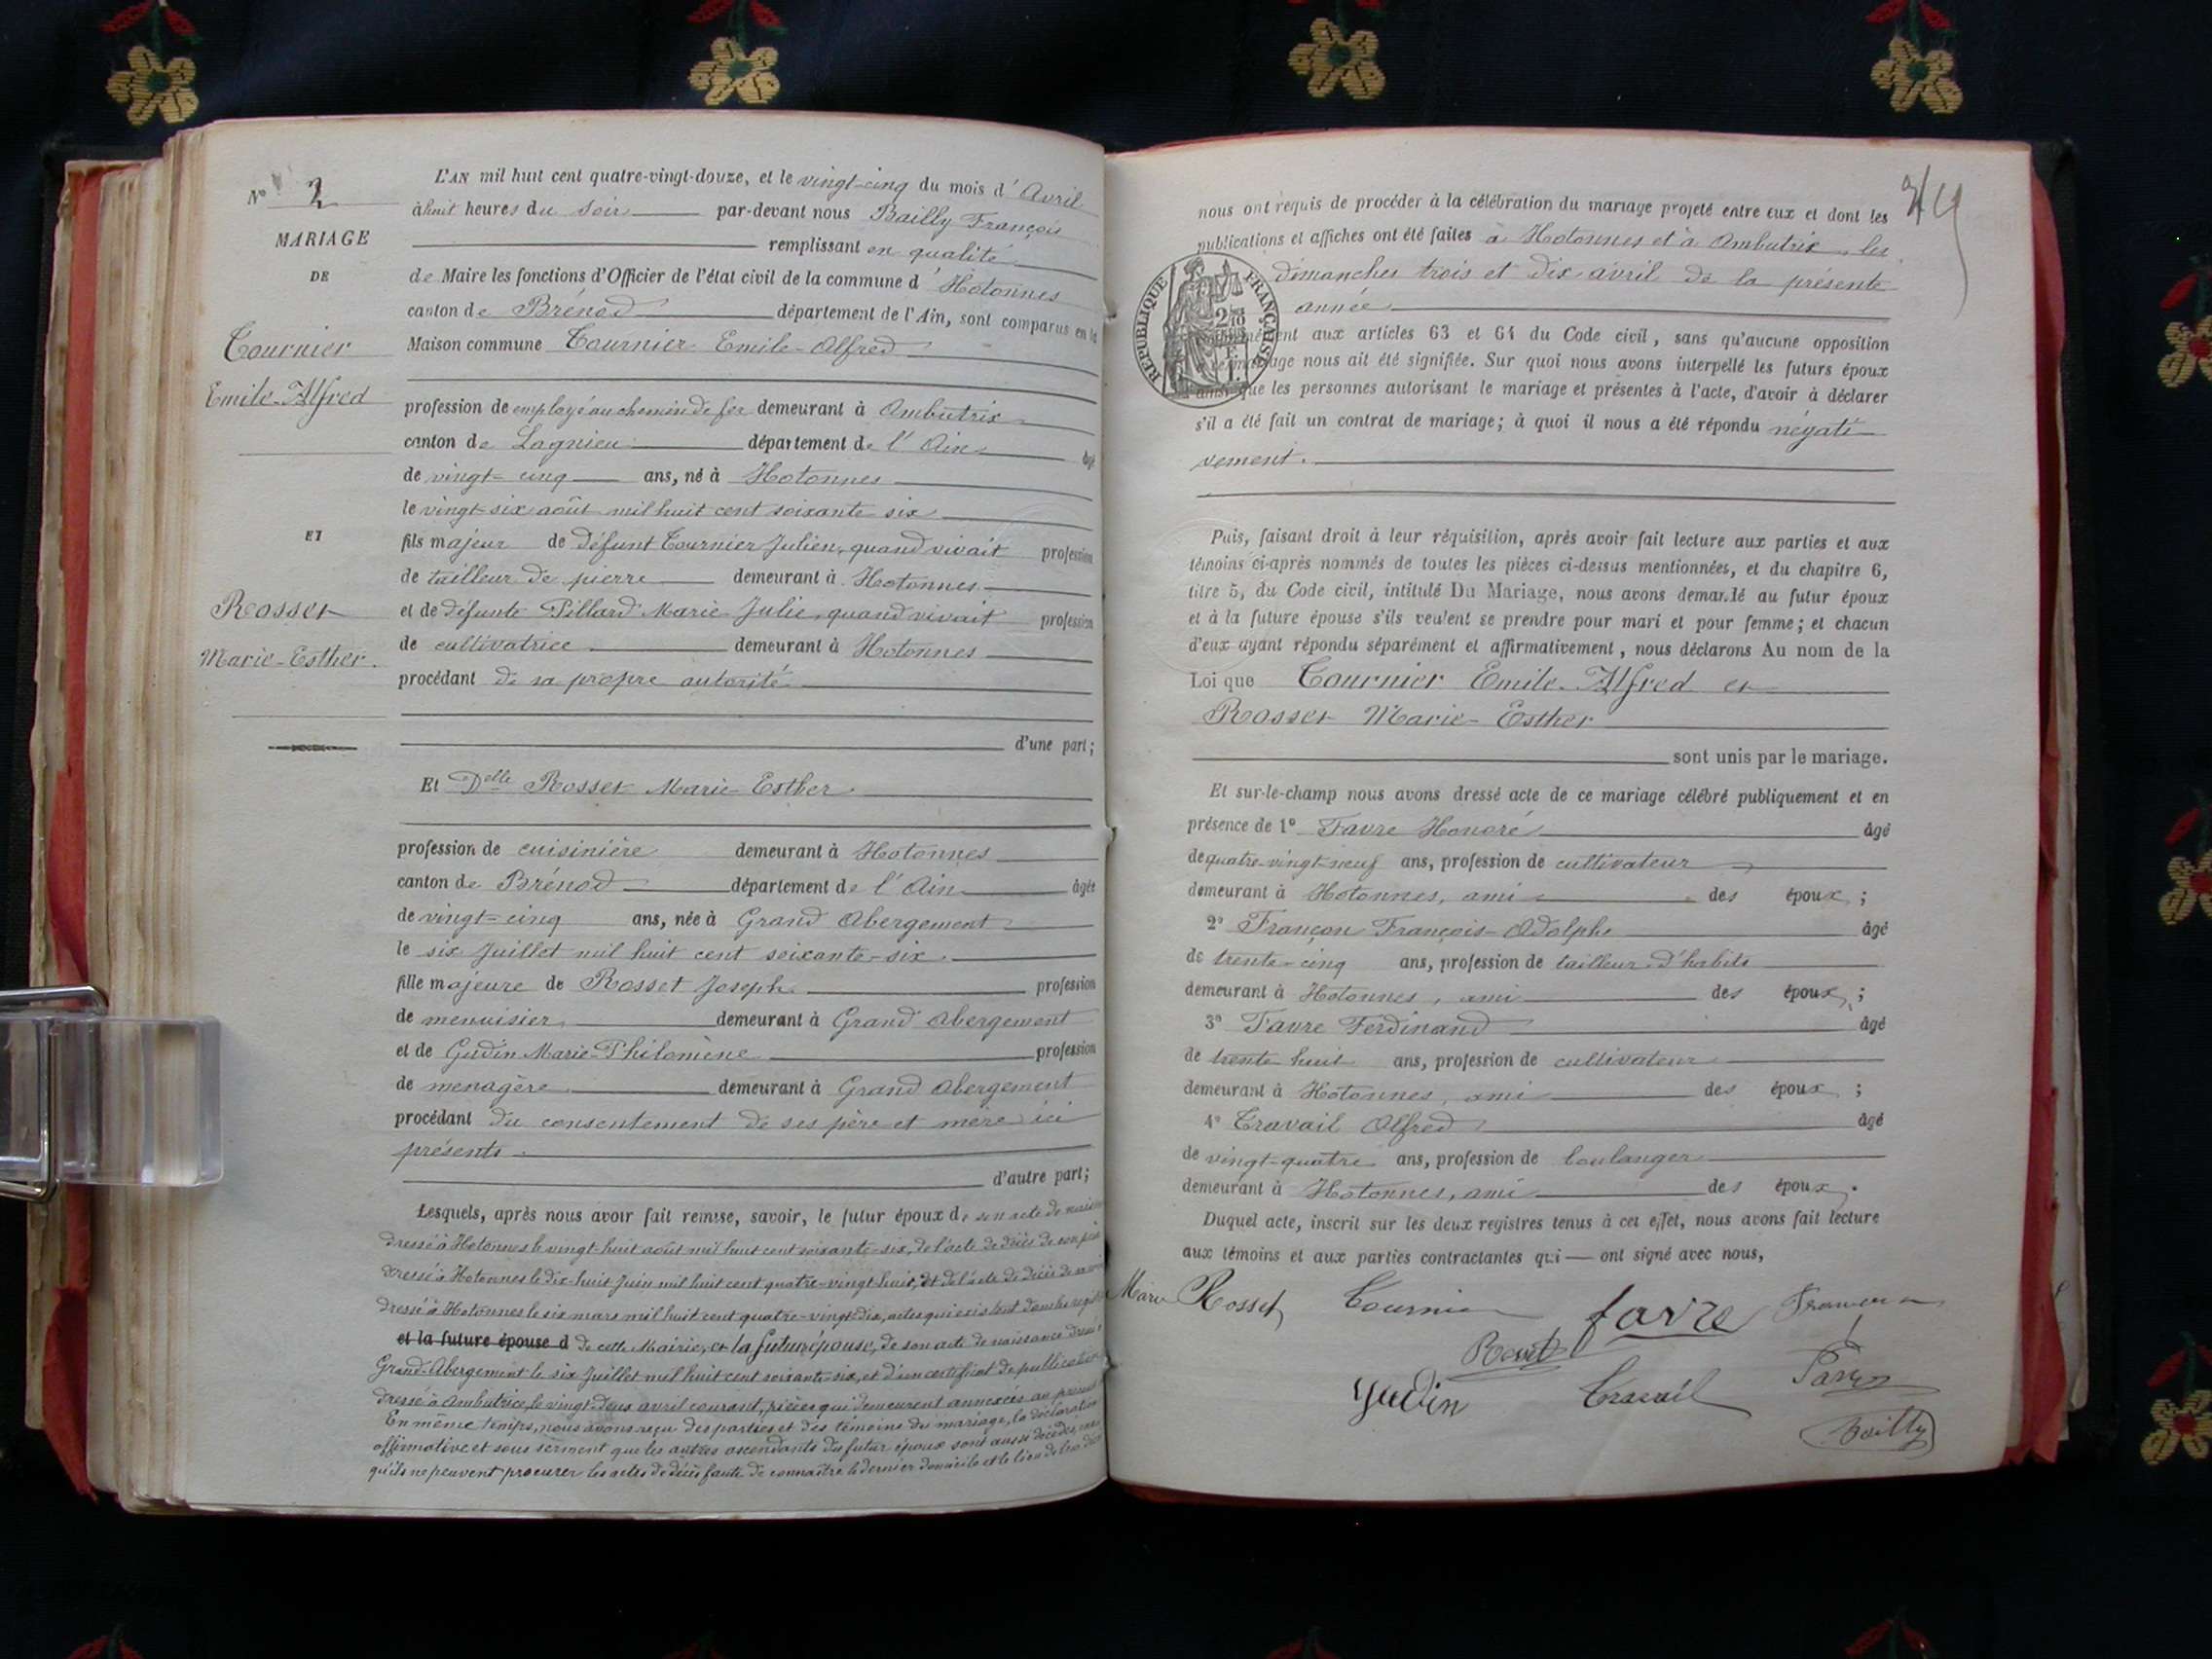 N° 2
MARIAGE
DE
Tournier
Emile-Alfred
ET
Rosset
Marie-Esther.
L'AN mil huit cent quatre-vingt-douze, et le vingt-cinq du mois d'Avril
à huit heures du soir par-devant nous Bailly François
remplissant en qualité
de Maire les fonctions d'Officier de l'état civil de la commune d'Hotonnes
canton de Brénod département de l'Ain, sont comparus en la
Maison commune Tournier Emile-Alfred
profession de employé au chemin de fer demeurant à Ambutrix
canton de Lagnieu département de l'Ain âgé
de vingt-cinq ans, né à Hotonnes
le vingt-six août mil huit cent soixante six
fils majeur de défunt Tournier Julien, quand vivait profession
de tailleur de pierre demeurant à Hotonnes
et de défunte Pillard Marie Julie, quand vivait profession
de cultivatrice demeurant à Hotonnes
procédant de sa propre autorité
d'une part;
Et Delle Rosset Marie-Esther.
profession de cuisinière demeurant à Hotonnes
canton de Brénod département de l'Ain âgée
de vingt-cinq ans, née à Grand Abergement
le six Juillet mil huit cent soixante-six.
fille majeure de Rosset Joseph profession
de menuisier demeurant à Grand Abergement
et de Gudin Marie-Philomène profession
de menagère demeurant à Grand Abergement
procédant du consentement de ses père et mère ici
présents.
d'autre part;
Lesquels, après nous avoir fait remise, savoir, le futur époux de son acte de naissance
dressé à Hotonnes le vingt-huit août mil huit cent soixante-six, de l'acte de décès de son père
dressé à Hotonnes le dix-huit Juin mil huit cent quatre-vingt-huit, et de l'acte de décès de sa mère
dressé à Hotonnes le six mars mil huit cent quatre-vingt-dix, actes qui existent dans les registres
et la future épouse d de cette Mairie, et la future épouse, de son acte de naissance dressé à
Grand-Abergement le six Juillet mil huit cent soixante-six, et d'un certificat de publication
dressé à Ambutrix, le vingt-deux avril courant, pièces qui demeurent annexées au présent
En même temps, nous avons reçu des parties et des témoins du mariage, la déclaration
affirmative et sous serment que les autres ascendants du futur époux sont aussi décédés, mais
qu'ils ne peuvent procurer les actes de décès faute de connaître le dernier domicile et le lieu de leur décès
nous ont requis de procéder à la célébration du mariage projeté entre eux et dont les
publications et affiches ont été faites à Hotonnes et à Ambutrix, les
dimanches trois et dix avril de la présente
année
RÉPUBLIQUE FRANÇAISE
conformément aux articles 63 et 64 du Code civil, sans qu'aucune opposition
à ce mariage nous ait été signifiée. Sur quoi nous avons interpellé les futurs époux
ainsi que les personnes autorisant le mariage et présentes à l'acte, d'avoir à déclarer
s'il a été fait un contrat de mariage; à quoi il nous a été répondu négati
vement.
Puis, faisant droit à leur réquisition, après avoir fait lecture aux parties et aux
témoins ci-après nommés de toutes les pièces ci-dessus mentionnées, et du chapitre 6,
titre 5, du Code civil, intitulé Du Mariage, nous avons demandé au futur époux
et à la future épouse s'ils veulent se prendre pour mari et pour femme; et chacun
d'eux ayant répondu séparément et affirmativement, nous déclarons Au nom de la
Loi que Tournier Emile-Alfred et
Rosset Marie-Esther
sont unis par le mariage.
Et sur-le-champ nous avons dressé acte de ce mariage célébré publiquement et en
présence de 1° Favre Honoré âgé
de quatre-vingt-neuf ans, profession de cultivateur
demeurant à Hotonnes, ami des époux;
2° Françon François-Adolphe âgé
de trente-cinq ans, profession de tailleur d'habits
demeurant à Hotonnes, ami des époux;
3° Favre Ferdinand âgé
de trente huit ans, profession de cultivateur
demeurant à Hotonnes, ami des époux;
4° Travail Alfred âgé
de vingt-quatre ans, profession de boulanger
demeurant à Hotonnes, ami des époux.
Duquel acte, inscrit sur les deux registres tenus à cet effet, nous avons fait lecture
aux témoins et aux parties contractantes qui — ont signé avec nous,
Marie Rosset Tournier favre
Rosset
Gudin Travail Favre
Bailly